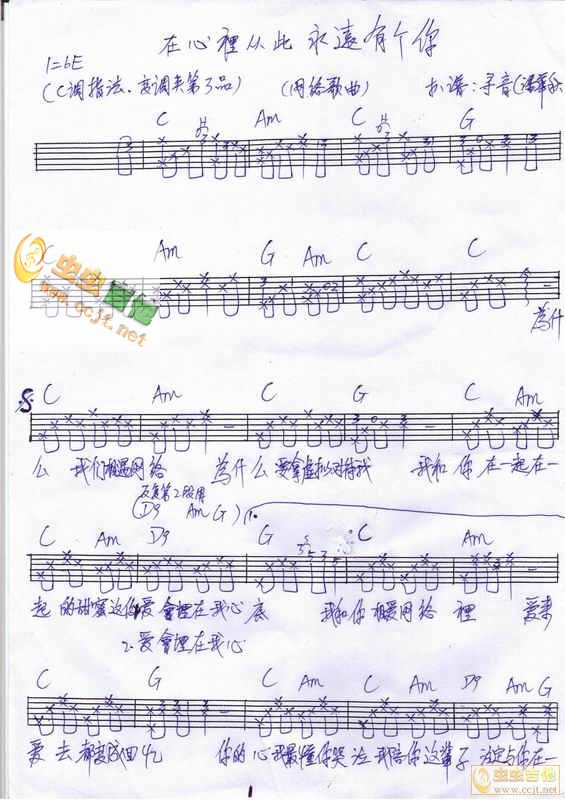 在心裡从此永遠有个你
1=bE
(C调指法、变调夹第3品) (网络歌曲) 扒谱:寻音(
C Am C G
C Am G Am C C
虫虫吉他
www.ccjt.net
為什
C Am C G C Am
么 我们相遇网络 為什么要拿虚拟对待我 我和你在一起在一
反复第2段用
(D9 Am G) 1.
C Am D9 G C Am
起的甜蜜这份爱會埋在我心底 我和你相遇网络裡 爱来
2.爱會埋在我心
C G C Am D9 Am G
爱去都變成回忆 你的心我最懂你哭泣我陪你这辈子注定与你在一
虫虫吉他
www.ccjt.net